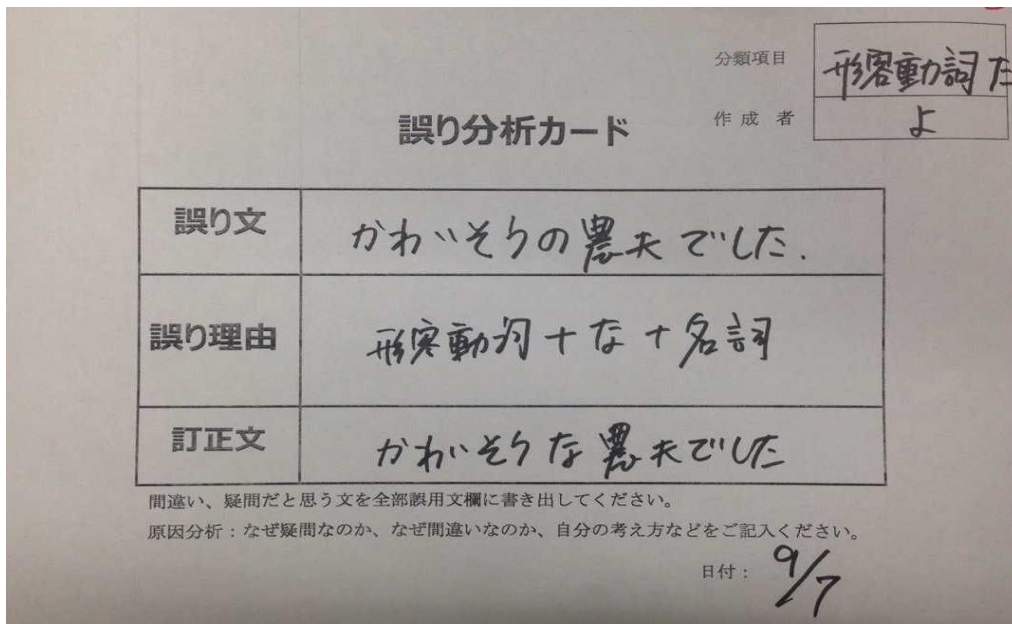 分類項目 形容動詞た
作成者 よ
誤り分析カード
誤り文 かわいそうの農夫でした.
誤り理由 形容動詞+な+名詞
訂正文 かわいそうな農夫でした
間違い、疑問だと思う文を全部誤用文欄に書き出してください。
原因分析:なぜ疑問なのか、なぜ間違いなのか、自分の考え方などをご記入ください。
日付: 9/7